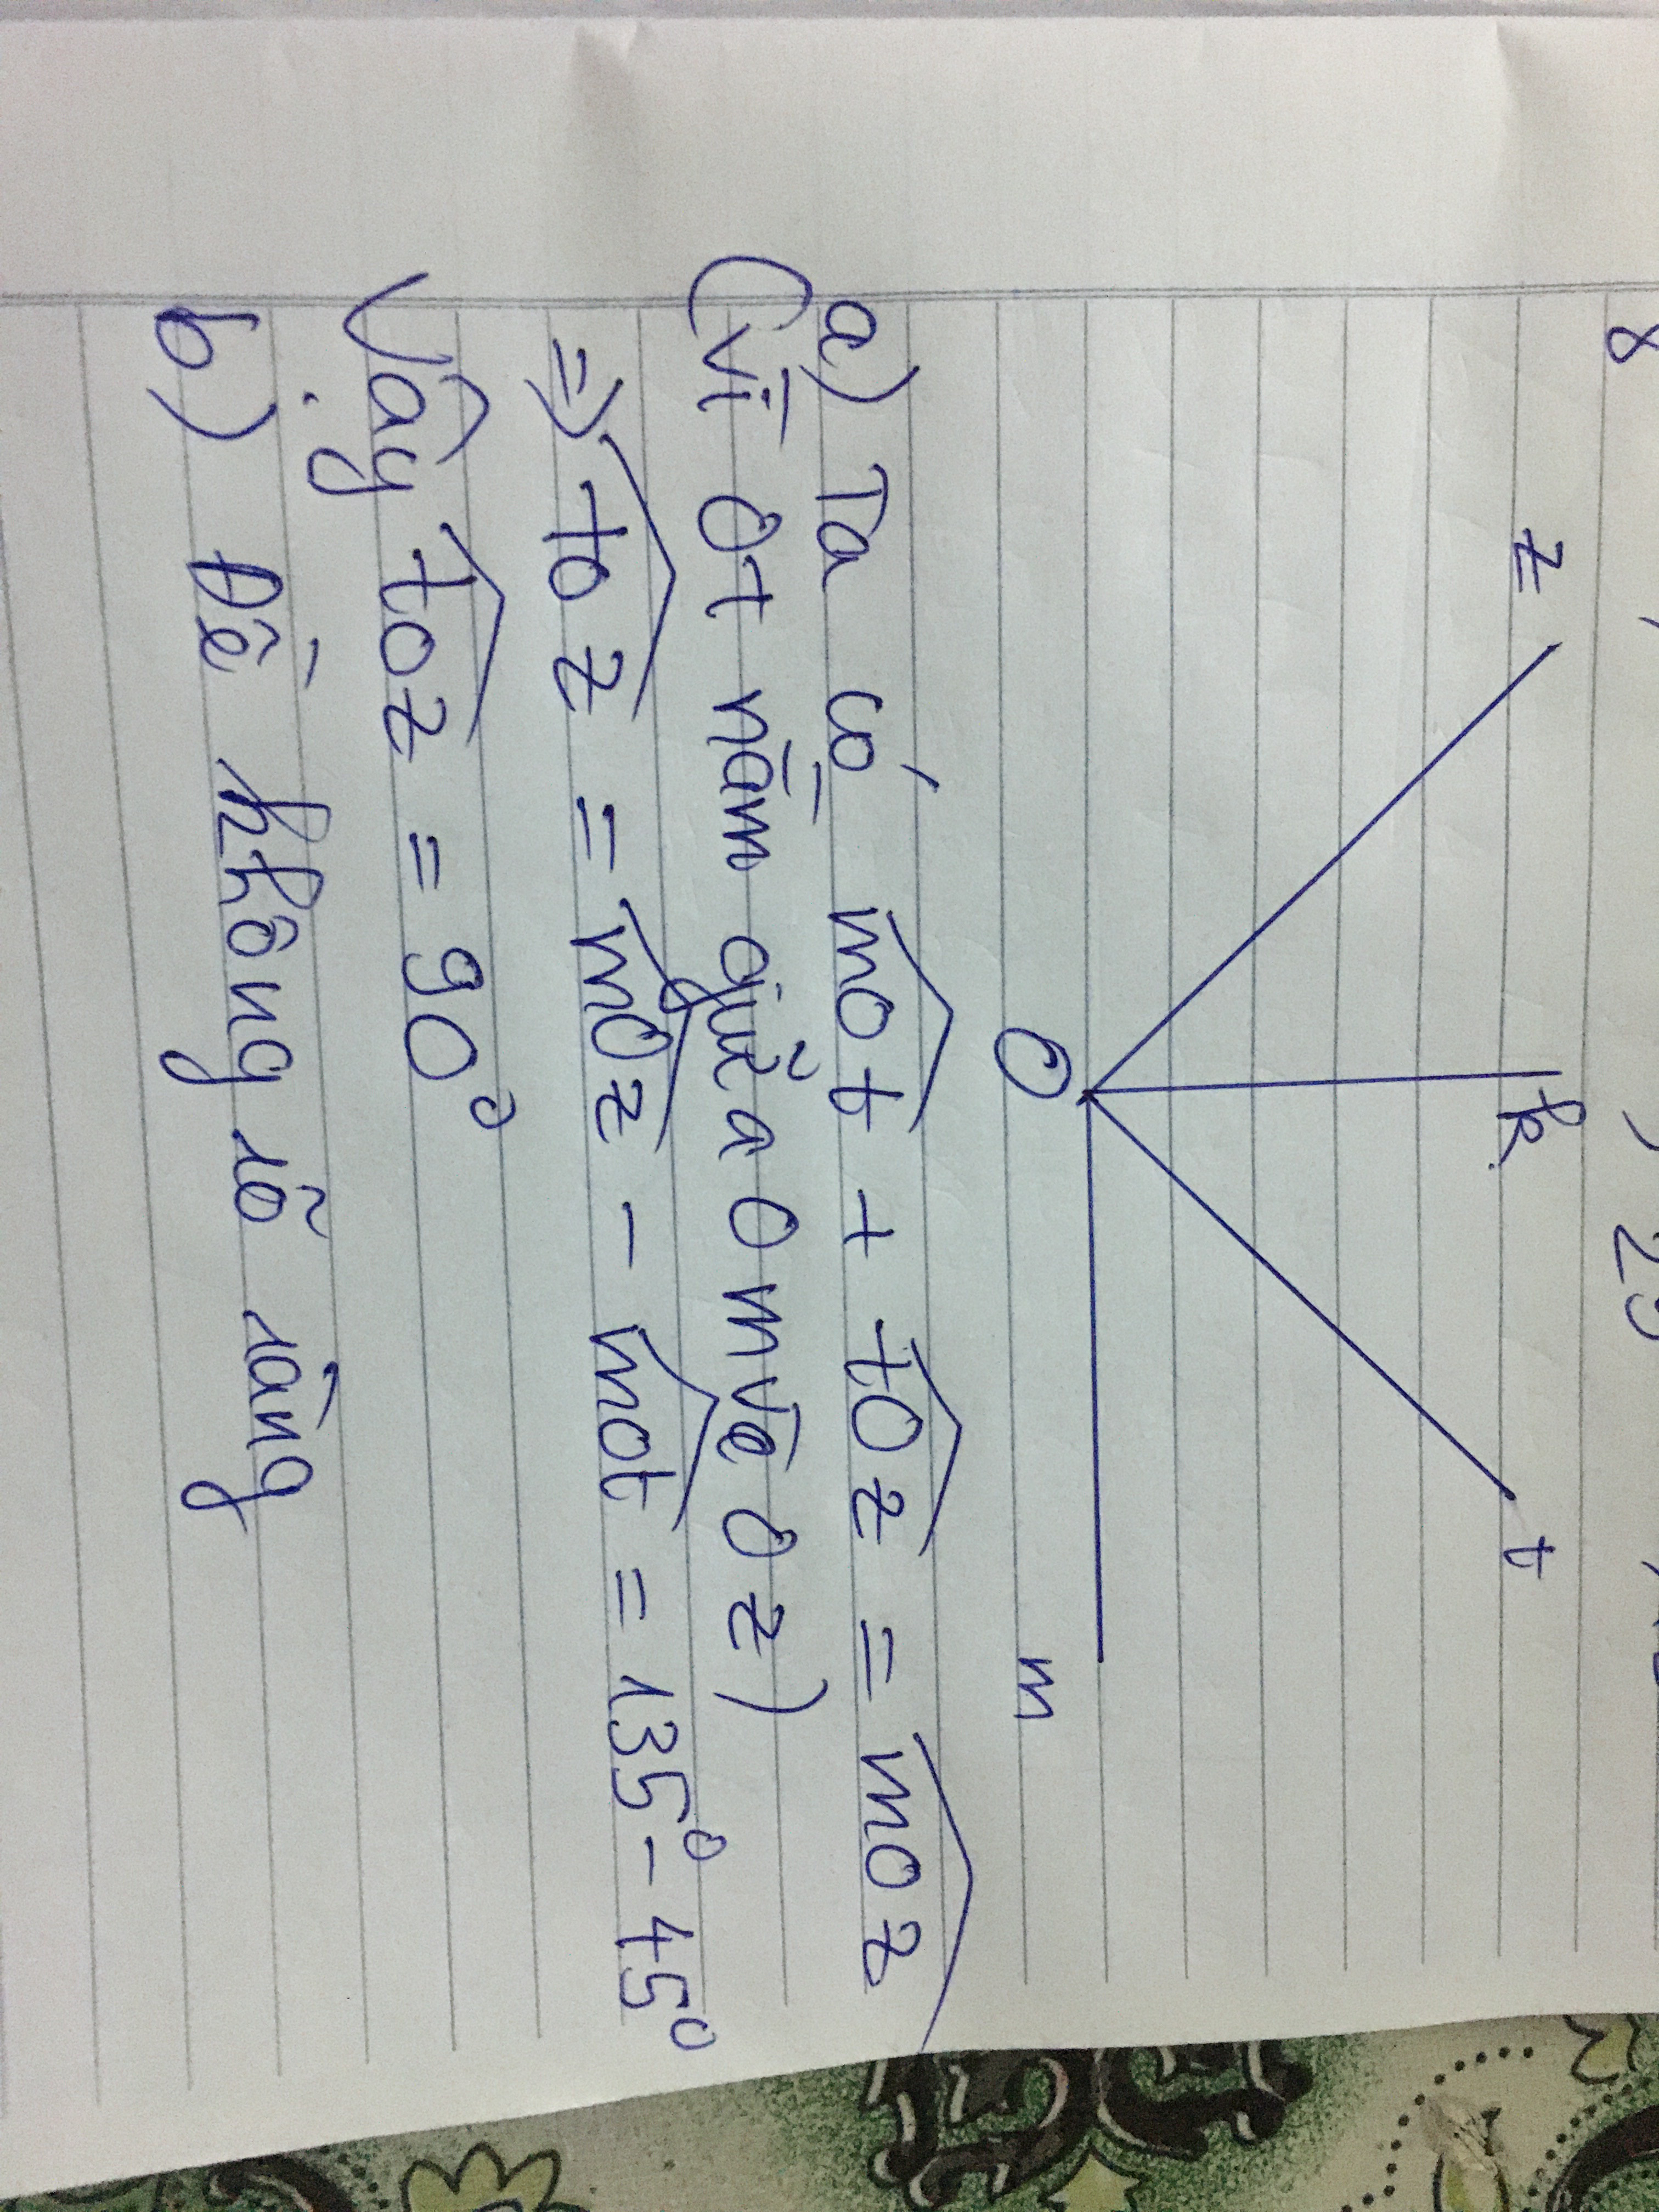 z
k
t
O
m
a) Ta có mOt + tOz = mOz
(vì Ot nằm giữa Om và Oz)
=> tOz = mOz - mOt = 135° - 45°
Vậy tOz = 90°
b) Đề không rõ ràng